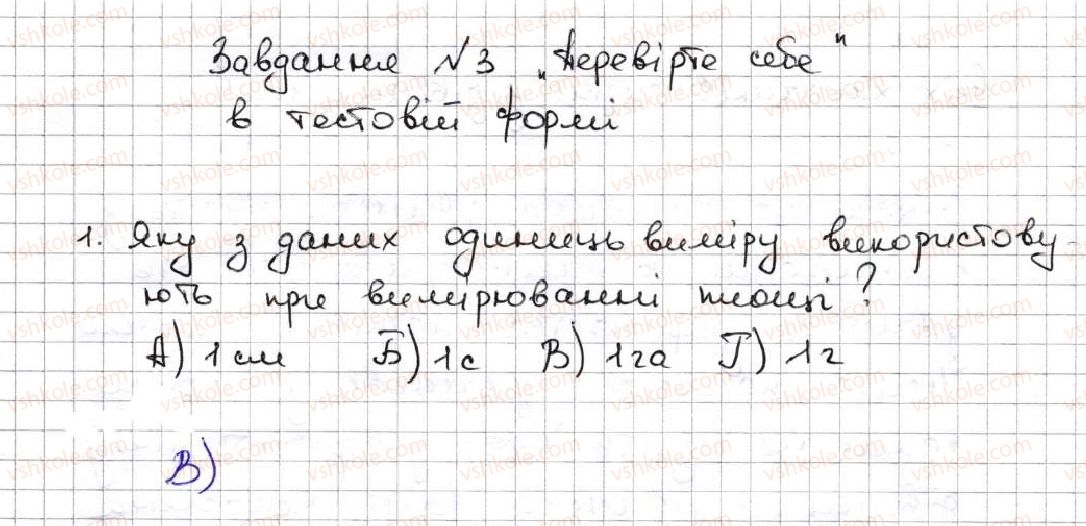 Завдання №3 „Перевірте себе"
в тестовій формі
1. Яку з даних одиниць виміру використову-
ють при вимірюванні площі?
А) 1 см Б) 1 с В) 1 га Г) 1 г
В)